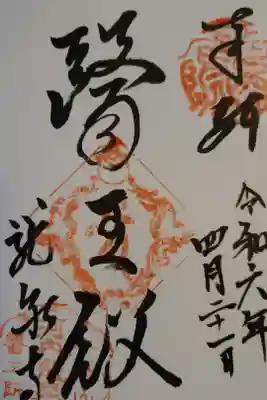 奉拝
令和六年
四月二十一日
醫王殿
龍泉寺